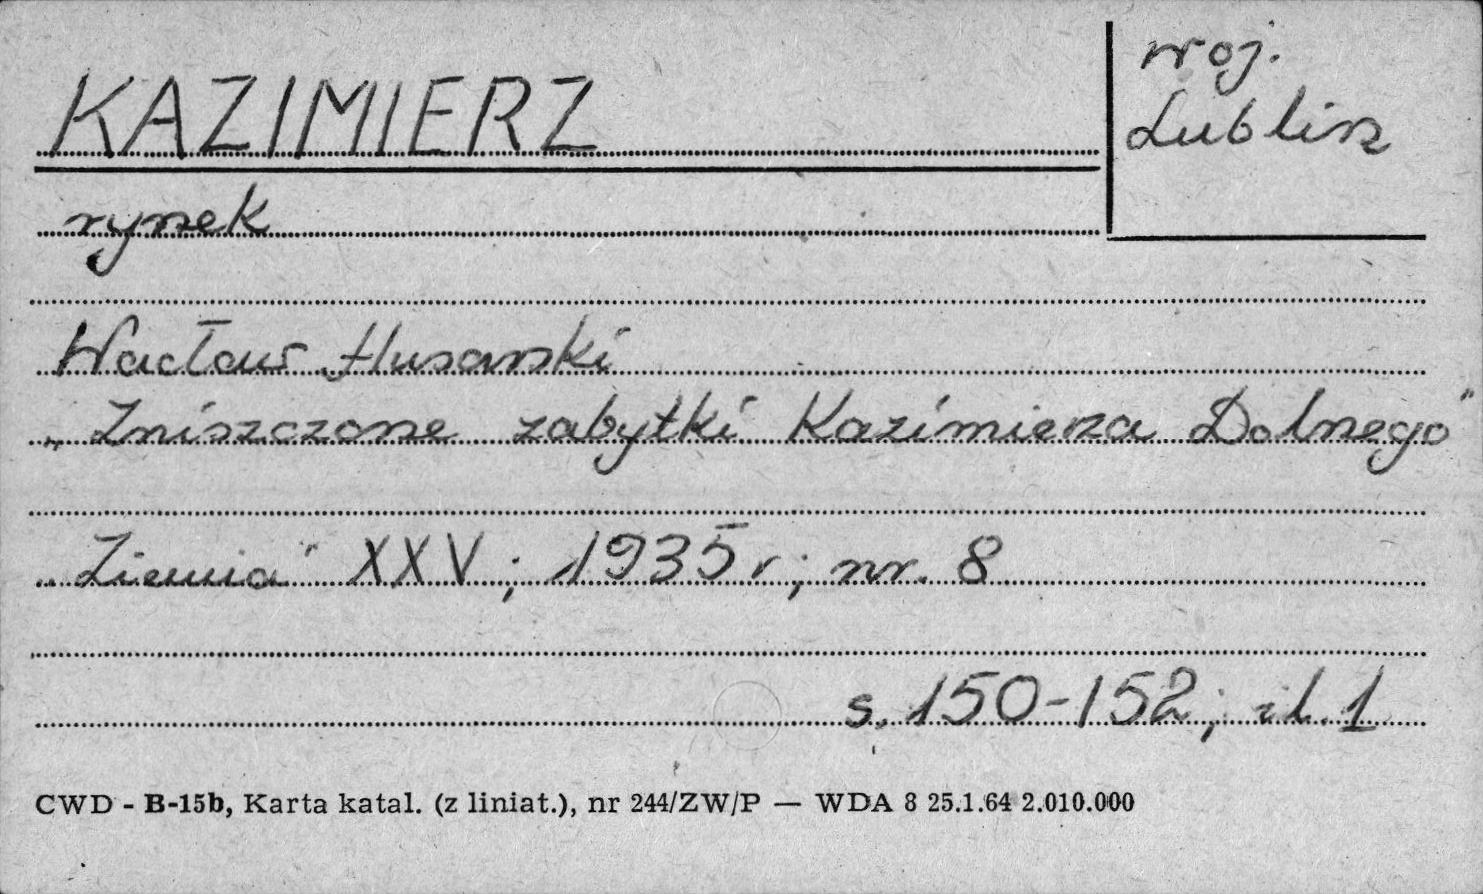 KAZIMIERZ
woj.
Lublin
rynek
Wacław Husarski
„Zniszczone zabytki Kazimierza Dolnego"
„Ziemia" XXV; 1935 r; nr. 8
s. 150-152; il. 1
CWD - B-15b, Karta katal. (z liniat.), nr 244/ZW/P — WDA 8 25.1.64 2.010.000